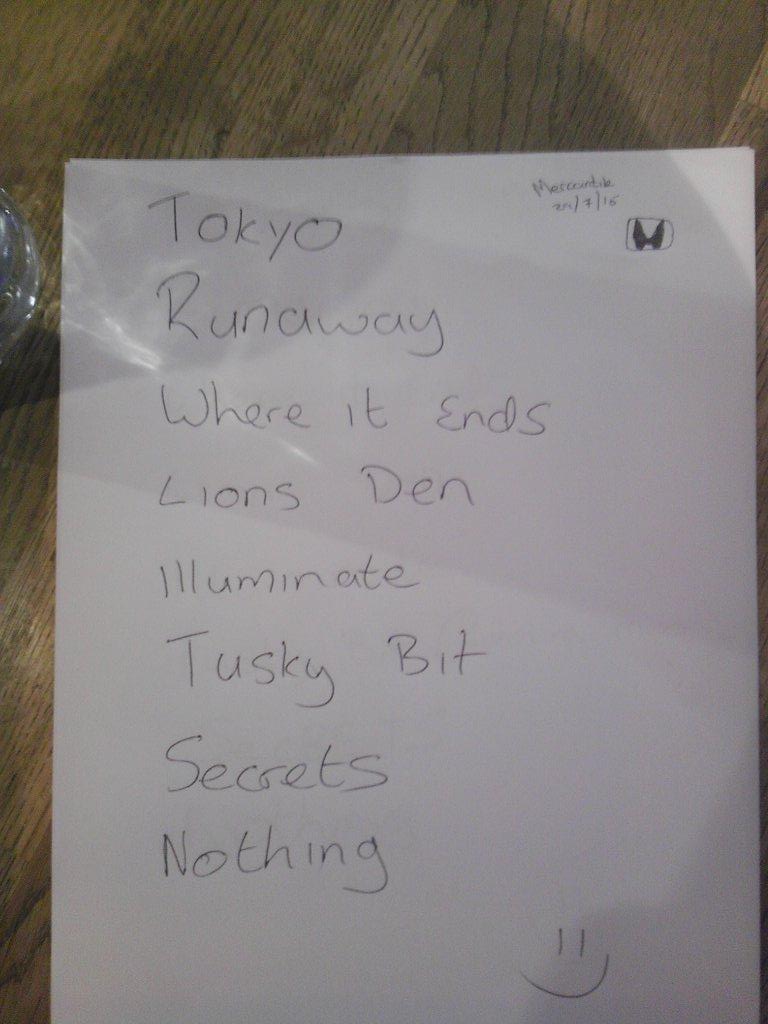 Mercantile
Tokyo
Runaway
Where it Ends
Lions Den
Illuminate
Tusky Bit
Secrets
Nothing